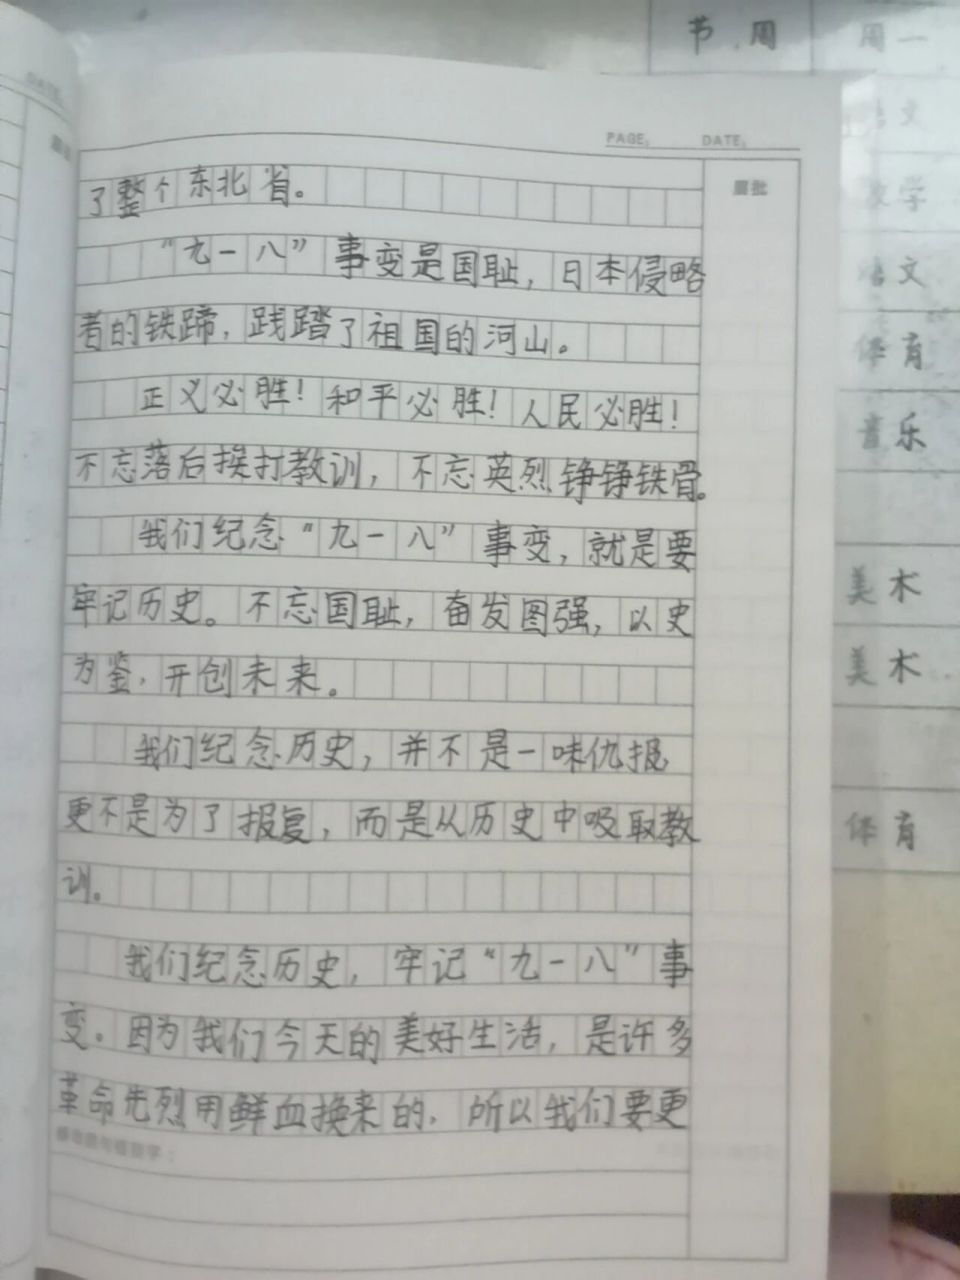 节 周 周一
PAGE: DATE:
眉批
了整个东北省。
“九一八”事变是国耻，日本侵略
者的铁蹄，践踏了祖国的河山。
正义必胜！和平必胜！人民必胜！
不忘落后挨打教训，不忘英烈铮铮铁骨。
我们纪念“九一八”事变，就是要
牢记历史。不忘国耻，奋发图强，以史
为鉴，开创未来。
我们纪念历史，并不是一味仇报
更不是为了报复，而是从历史中吸取教
训。
我们纪念历史，牢记“九一八”事
变。因为我们今天的美好生活，是许多
革命先烈用鲜血换来的，所以我们要更
语文
数学
语文
体育
音乐
美术
美术
体育